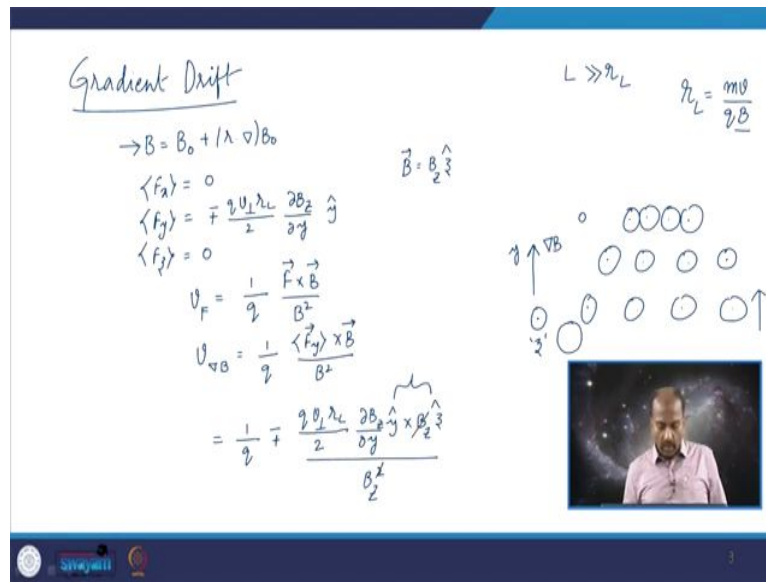 Gradient Drift
L >> r_L
r_L = mv / qB
→ B = B₀ + (r ∇) B₀
B⃗ = B_z ẑ
⟨F_x⟩ = 0
⟨F_y⟩ = ∓ (q v_⊥ r_L / 2) (∂B_z / ∂y) ŷ
⟨F_z⟩ = 0
y ↑ ∇B
'z'
v_F = (1 / q) (F⃗ × B⃗ / B²)
v_∇B = (1 / q) (⟨F⃗_y⟩ × B⃗ / B²)
= (1 / q) ∓ (q v_⊥ r_L / 2) (∂B_z / ∂y) ŷ × B_z ẑ / B_z²
swayam
3